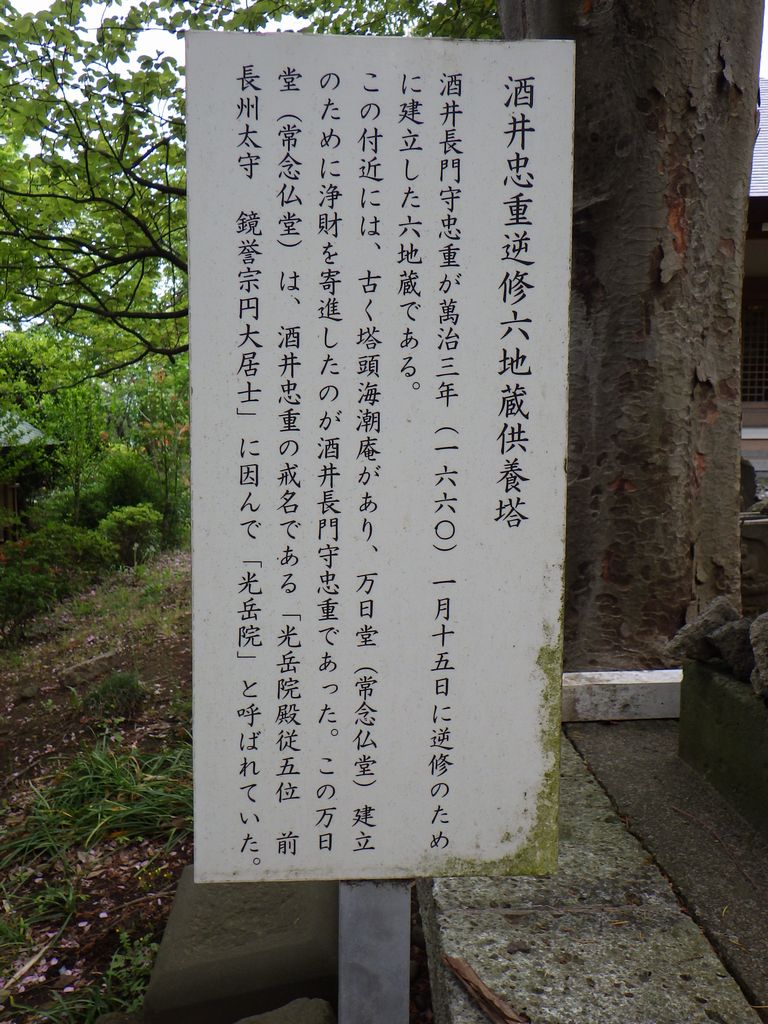 酒井忠重逆修六地蔵供養塔
酒井長門守忠重が萬治三年（一六六〇）一月十五日に逆修のため
に建立した六地蔵である。
この付近には、古く塔頭海潮庵があり、万日堂（常念仏堂）建立
のために浄財を寄進したのが酒井長門守忠重であった。この万日
堂（常念仏堂）は、酒井忠重の戒名である「光岳院殿従五位　前
長州太守　鏡誉宗円大居士」に因んで「光岳院」と呼ばれていた。